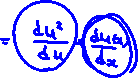 = du²/du · du/dx